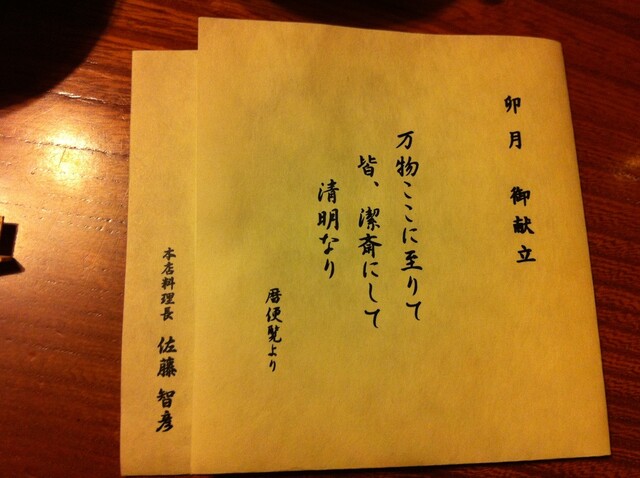 卯月　御献立
万物ここに至りて
皆、潔斎にして
清明なり
暦便覧より
本店料理長　佐藤　智彦